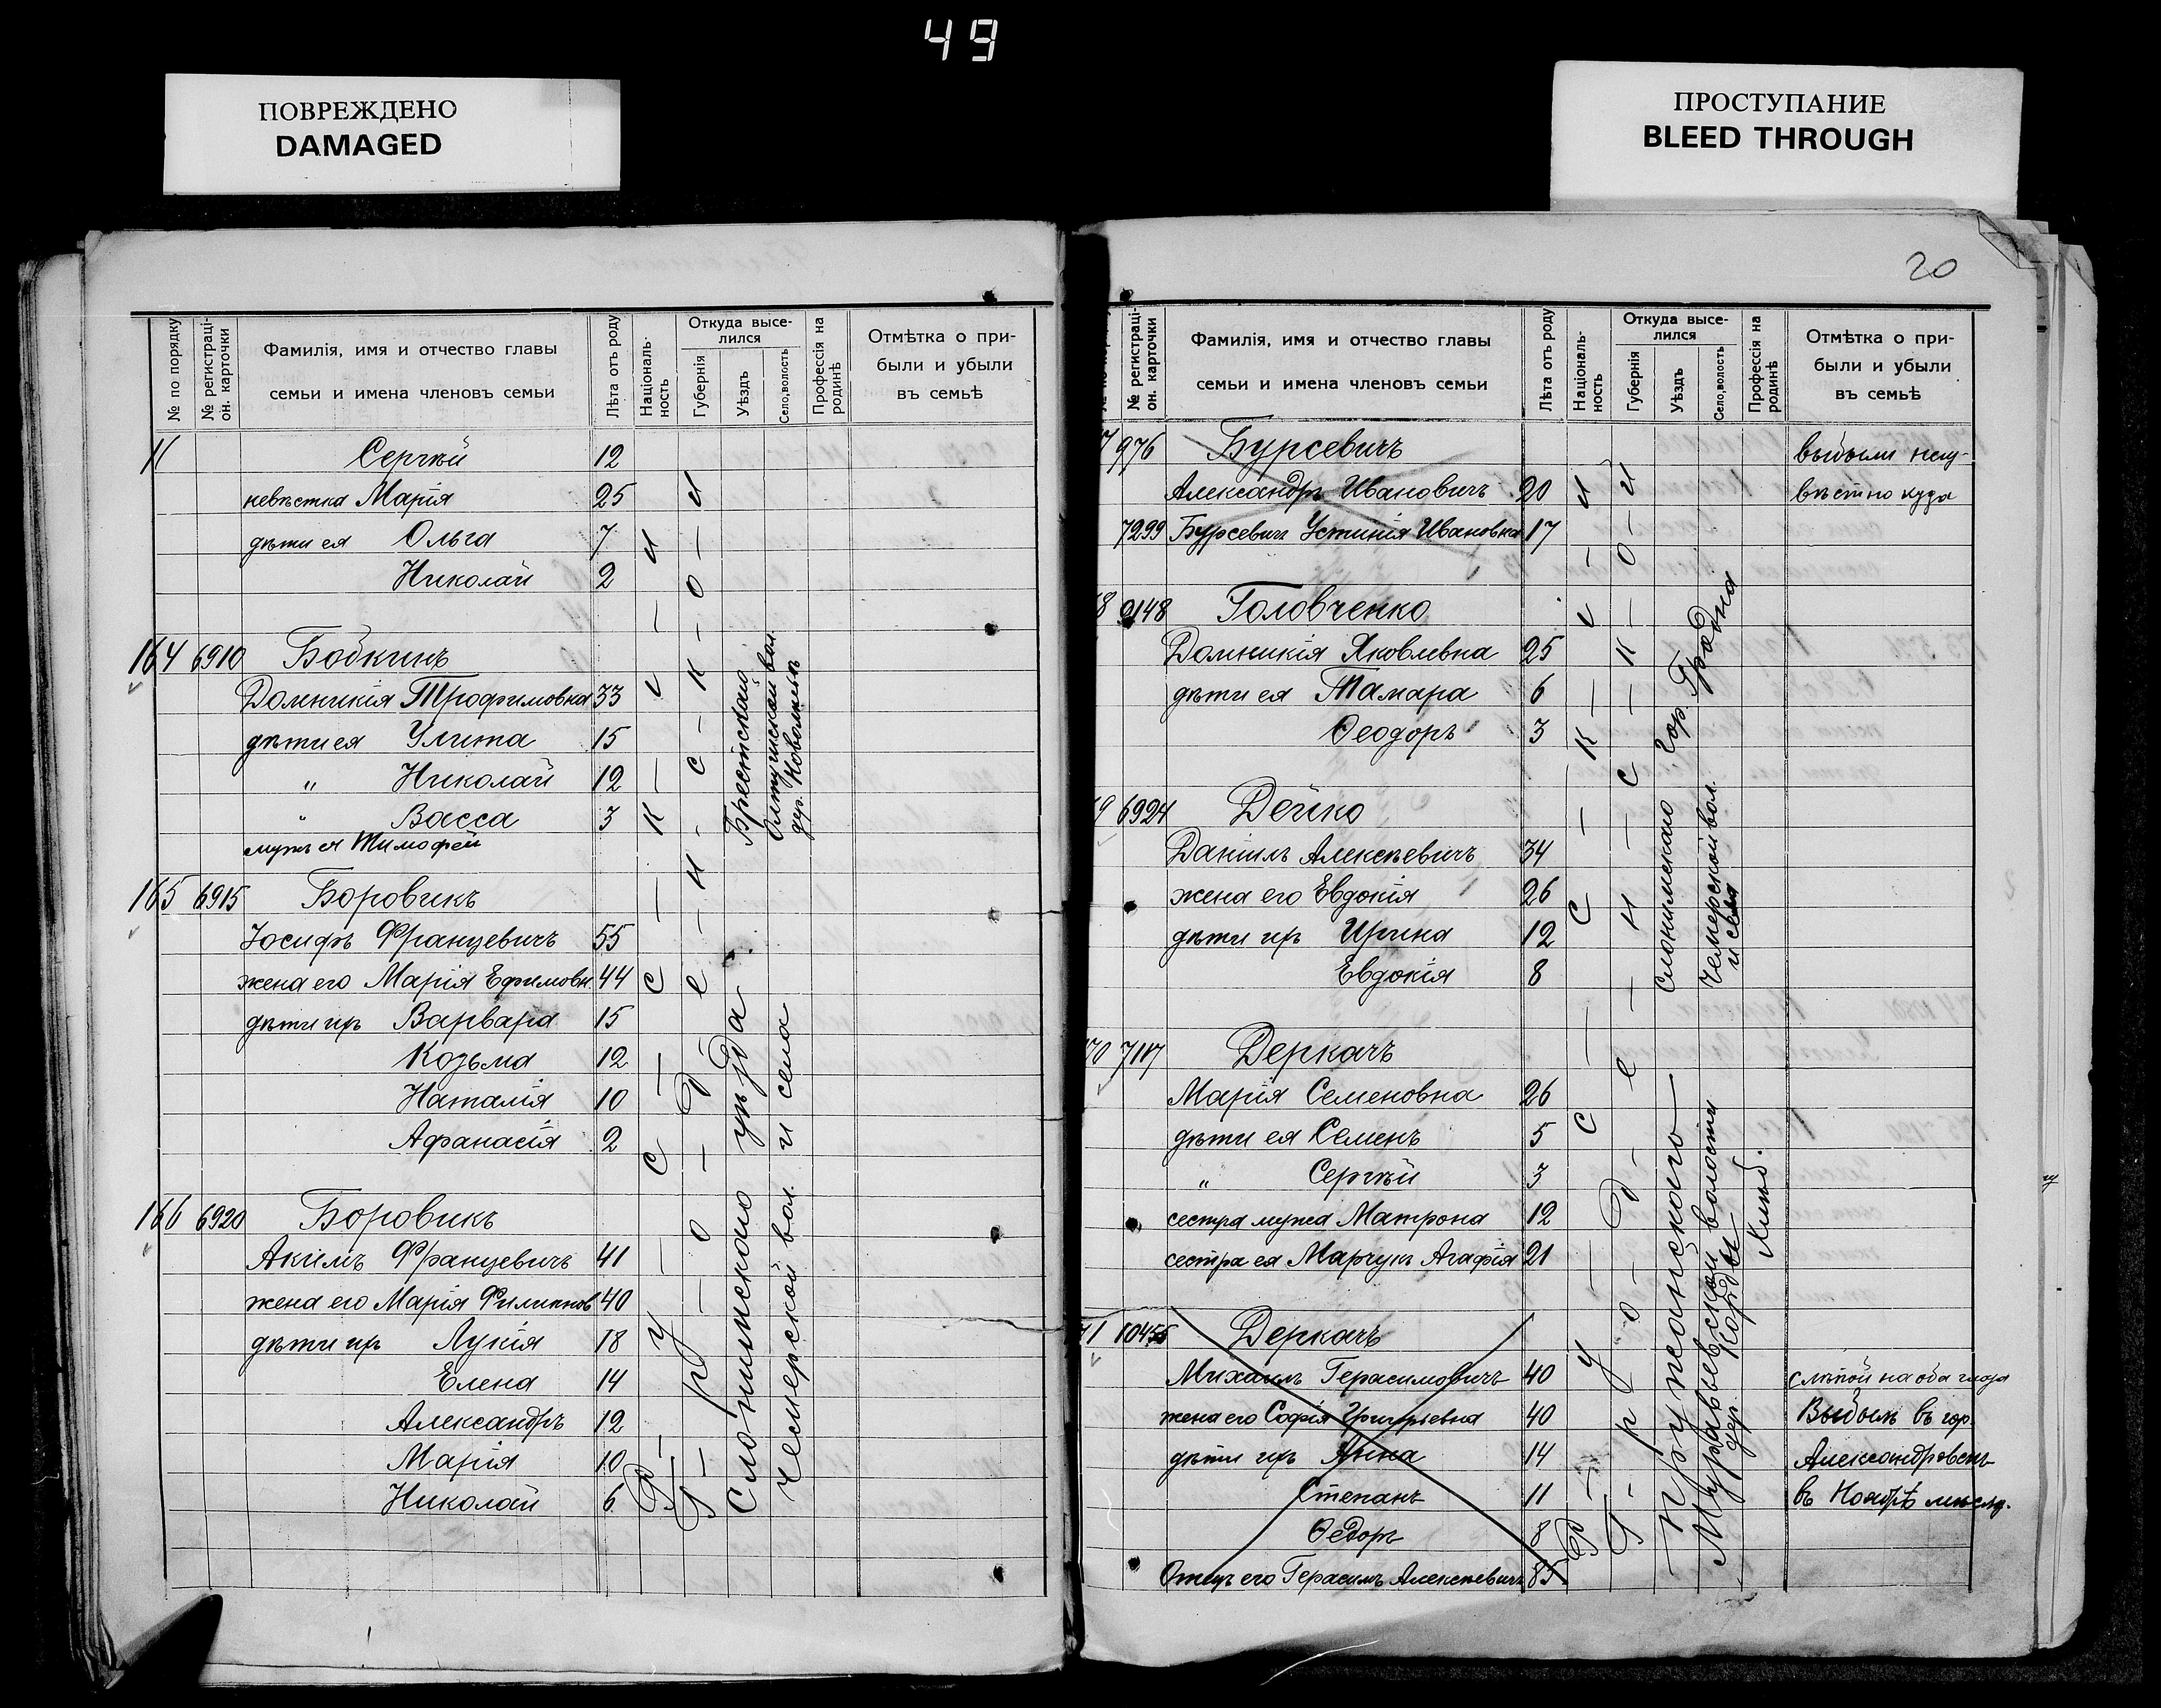 49
ПОВРЕЖДЕНО
DAMAGED
ПРОСТУПАНИЕ
BLEED THROUGH
№ по порядку
№ регистраці-
он. карточки
Фамилія, имя и отчество главы
семьи и имена членовъ семьи
Лѣта отъ роду
Національ-
ность
Откуда высе-
лился
Губернія
Уѣздъ
Село, волость
Профессія на
родинѣ
Отмѣтка о при-
были и убыли
въ семьѣ
Сергѣй 12
невѣстка Марія 25
дѣти ея Ольга 7
Николай 2
164 6910 Бобкинъ
Домникія Трофимовна 33
дѣти ея Улита 15
" Николай 12
" Васса 3
мужъ ея Тимофей
165 6915 Боровикъ
Іосифъ Францевичъ 55
жена его Марія Ефимовн. 44
дѣти ихъ Варвара 15
Козьма 12
Наталія 10
Афанасія 2
166 6920 Боровикъ
Акимъ Францевичъ 41
жена его Марія Филиппов 40
дѣти ихъ Лукія 18
Елена 14
Александръ 12
Марія 10
Николай 6
Р — у — с — с — к — і — и
Г — р — о — д — е — н — с — к — о — и
Брестскаго
Олтушской вол.
дер.
Слонимскаго уѣзда
Чемерской вол. и села
20
№ регистраці-
он. карточки
Фамилія, имя и отчество главы
семьи и имена членовъ семьи
Лѣта отъ роду
Національ-
ность
Откуда высе-
лился
Губернія
Уѣздъ
Село, волость
Профессія на
родинѣ
Отмѣтка о при-
были и убыли
въ семьѣ
7 976 Бурсевичъ выбыли неиз-
Александръ Ивановичъ 20 вѣстно куда
7299 Бурсевич Устинія Ивановна 17
8 9148 Головченко
Домникія Яковлевна 25
дѣти ея Тамара 6
Ѳеодоръ 3
9 6924 Дейко
Даніилъ Алексѣевичъ 34
жена его Евдокія 26
дѣти ихъ Ирина 12
Евдокія 8
70 7117 Деркачъ
Марія Семеновна 26
дѣти ея Семенъ 5
" Сергѣй 3
сестра мужа Матрона 12
сестра ея Марчукъ Агафія 21
71 10455 Деркачъ
Михаилъ Герасимовичъ 40 слѣпой на оба глаза
жена его Софія Григорьевна 40 Выбылъ въ гор.
дѣти ихъ Анна 14 Александровскъ
Степанъ 11 въ Ноябрѣ мѣсяц.
Ѳедоръ 8
Отецъ его Герасимъ Алексѣевичъ 85
Р — у — с — с — к — і — и
Г — р — о — д — е — н — с — к — о — й
гор. Гродна
Слонимскаго
Чемерской вол.
и села
Пружанскаго
Муравьевской волости
дер.